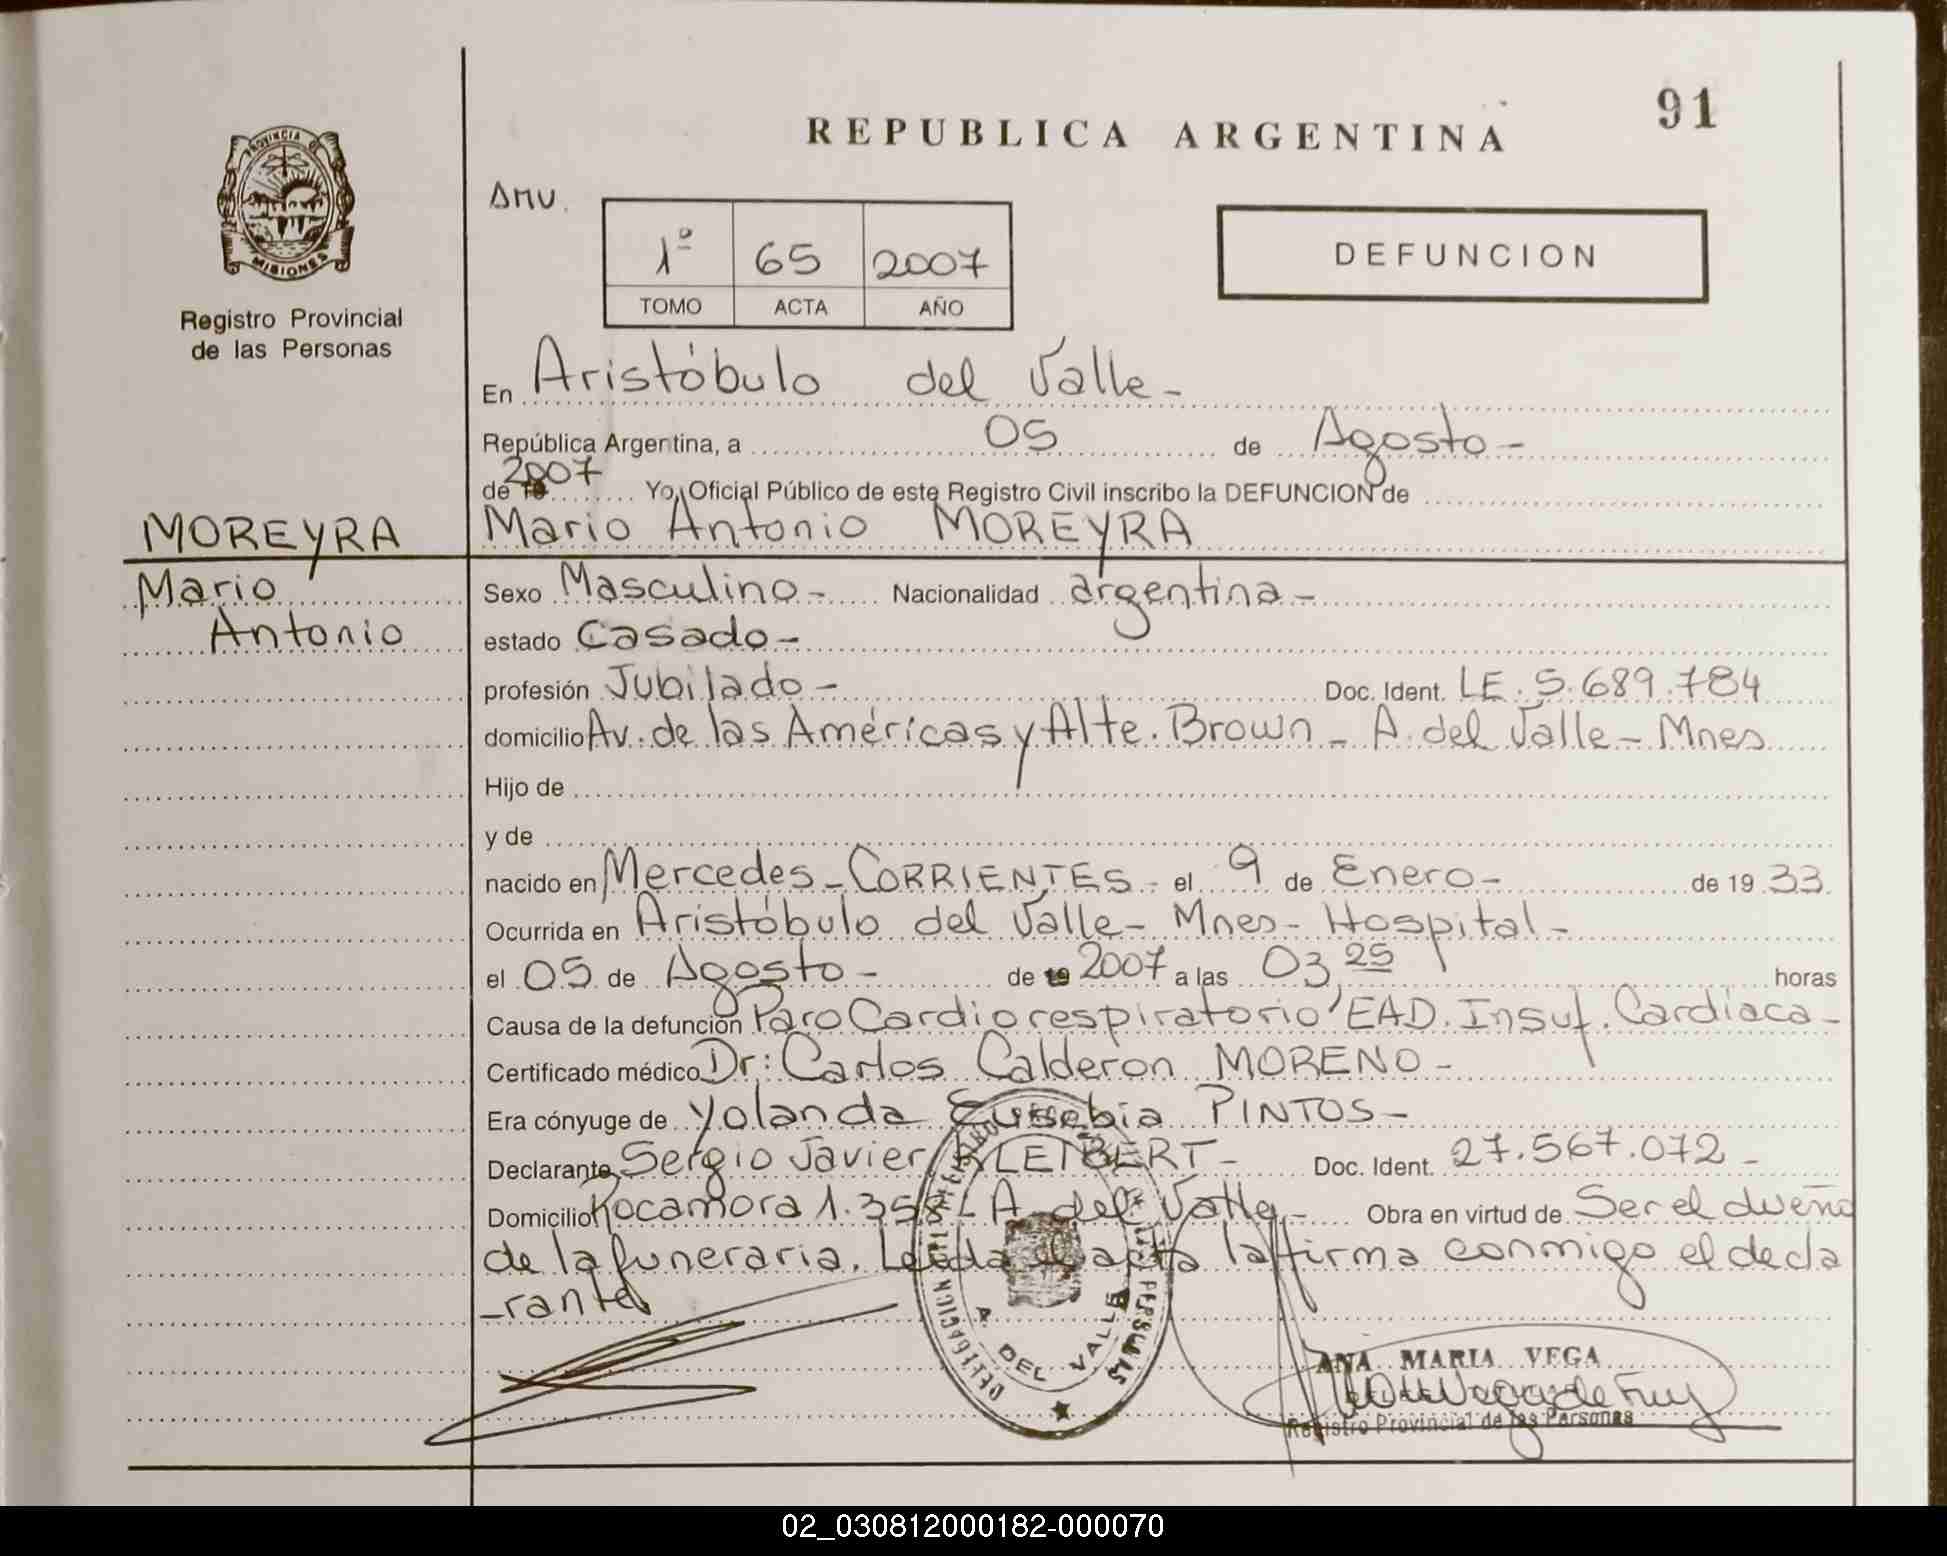 91
REPUBLICA ARGENTINA
PROVINCIA DE
MISIONES
Registro Provincial
de las Personas
AMV.
1º 65 2007
TOMO ACTA AÑO
DEFUNCION
En Aristóbulo del Valle-
República Argentina, a 05 de Agosto-
de 19 2007 Yo, Oficial Público de este Registro Civil inscribo la DEFUNCION de
MOREYRA Mario Antonio MOREYRA
Mario Sexo Masculino- Nacionalidad argentina-
Antonio estado Casado-
profesión Jubilado- Doc. Ident. LE. 5.689.784
domicilio Av. de las Américas y Alte. Brown - A. del Valle - Mnes
Hijo de
y de
nacido en Mercedes - CORRIENTES - el 9 de Enero- de 19 33
Ocurrida en Aristóbulo del Valle- Mnes- Hospital-
el 05 de Agosto- de 19 2007 a las 03,25 horas
Causa de la defunción Paro Cardiorespiratorio EAD. Insuf. Cardíaca-
Certificado médico Dr: Carlos Calderon MORENO-
Era cónyuge de Yolanda Eusebia PINTOS-
Declarante Sergio Javier KLEIBERT- Doc. Ident. 27.567.072-
Domicilio Rocamora 1.358 - A. del Valle- Obra en virtud de Ser el dueño
de la funeraria. Leída el acta la firma conmigo el decla
-rante
DELEGACION A. DEL VALLE
ANA MARIA VEGA
Registro Provincial de las Personas
02_030812000182-000070